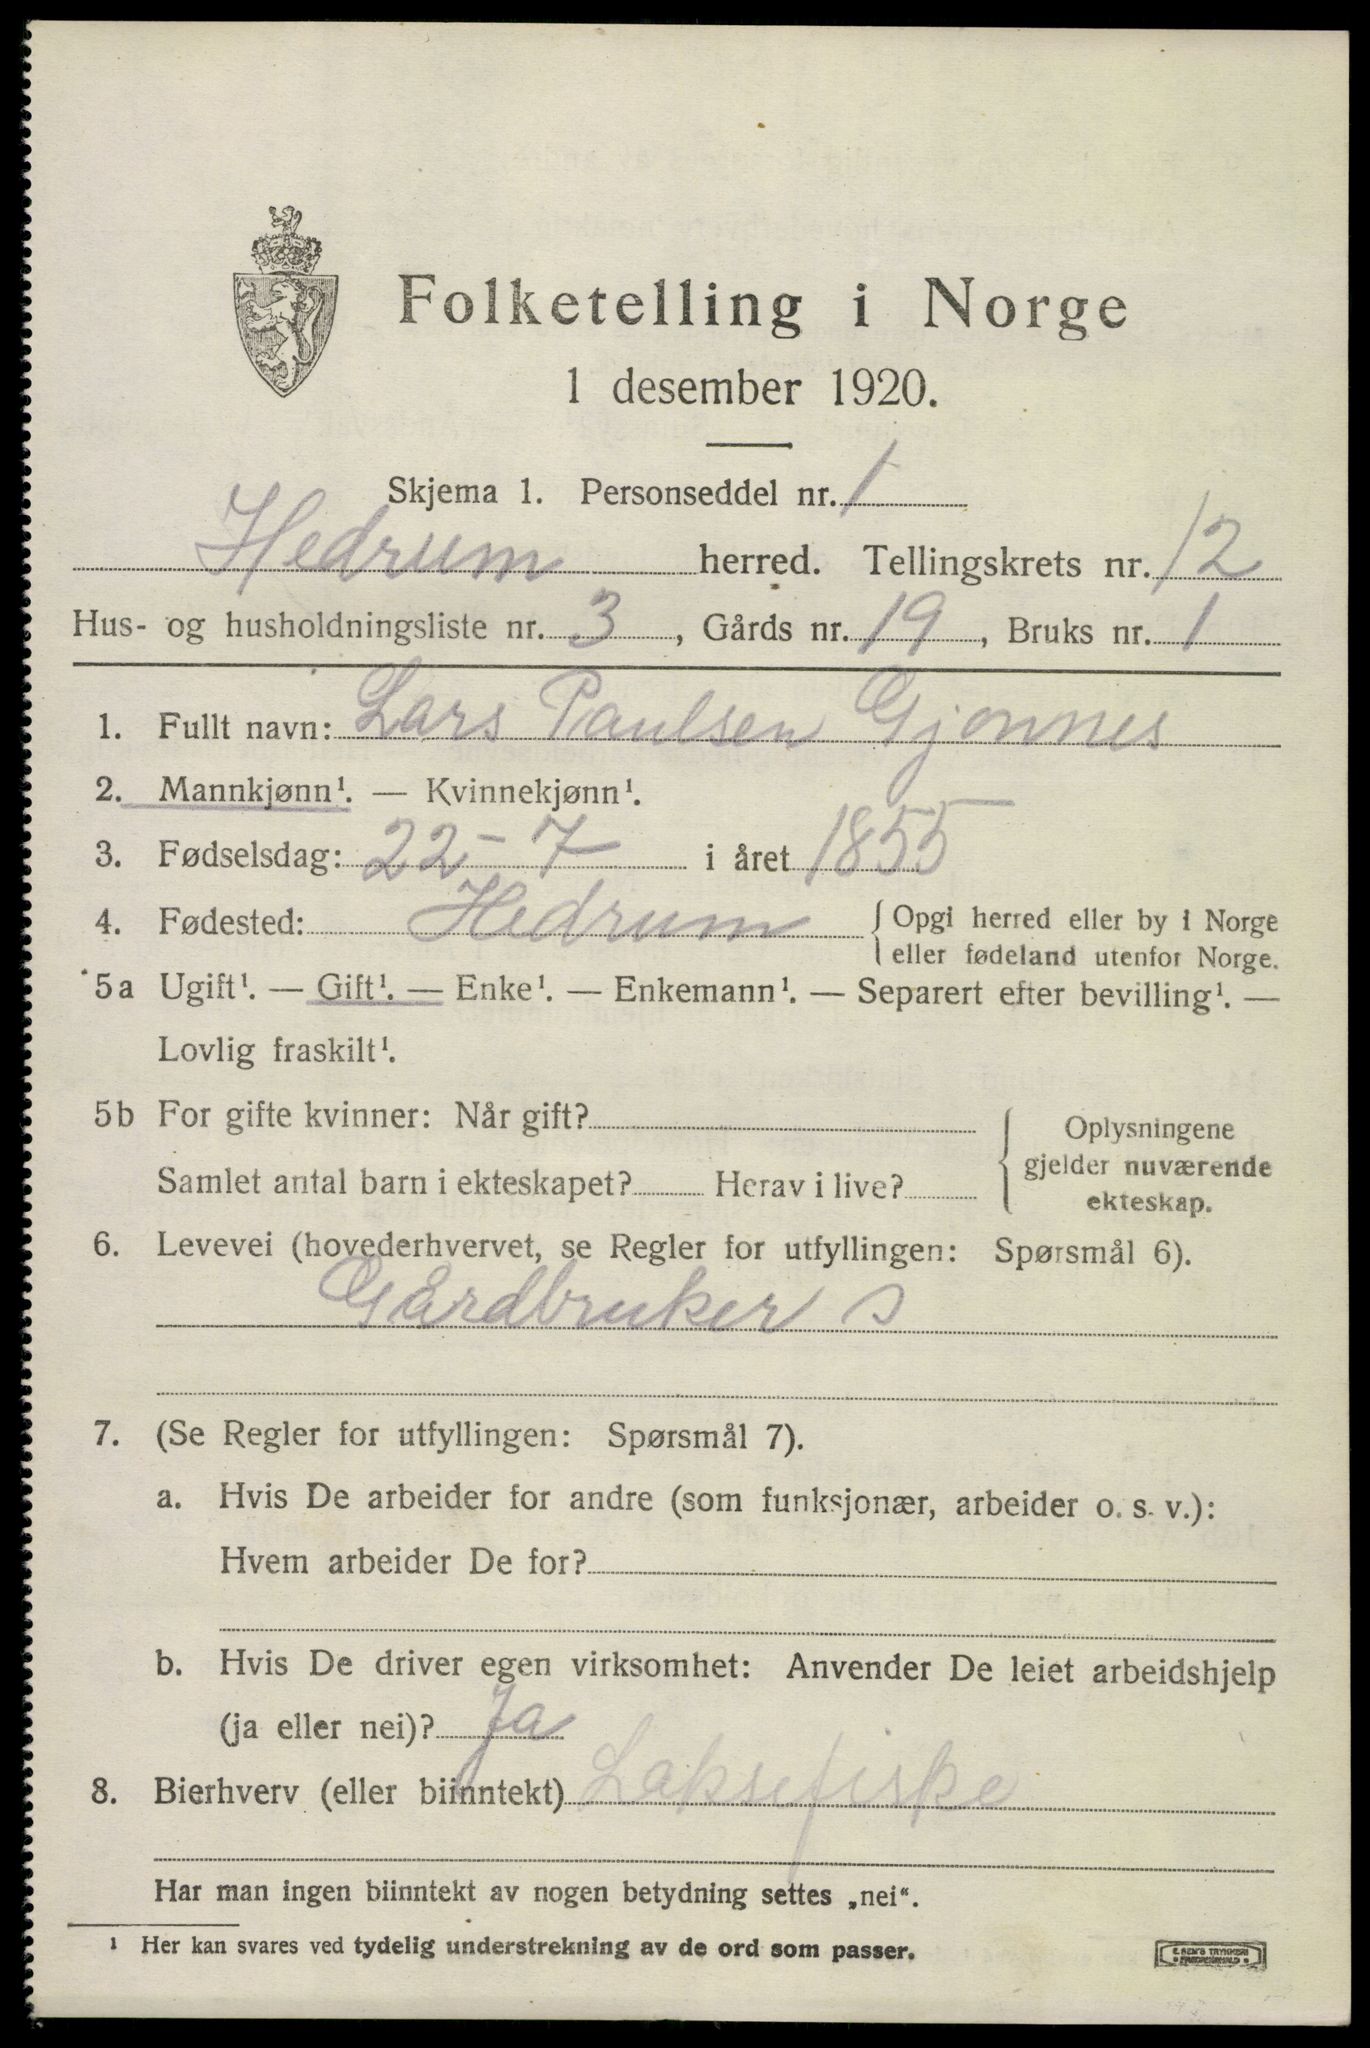 Folketelling i Norge
1 desember 1920.
Skjema 1. Personseddel nr. 1
Hedrum herred. Tellingskrets nr. 12
Hus- og husholdningsliste nr. 3, Gårds nr. 19, Bruks nr. 1
1. Fullt navn: Lars Paulsen Gjønnes
2. Mannkjønn¹. — Kvinnekjønn¹.
3. Fødselsdag: 22-7 i året 1855
4. Fødested: Hedrum { Opgi herred eller by i Norge
eller fødeland utenfor Norge.
5a Ugift¹. — Gift¹. — Enke¹. — Enkemann¹. — Separert efter bevilling¹. —
Lovlig fraskilt¹.
5b For gifte kvinner: Når gift?
Samlet antal barn i ekteskapet? Herav i live?
Oplysningene
gjelder nuværende
ekteskap.
6. Levevei (hovederhvervet, se Regler for utfyllingen: Spørsmål 6).
Gårdbruker s
7. (Se Regler for utfyllingen: Spørsmål 7).
a. Hvis De arbeider for andre (som funksjonær, arbeider o. s. v.):
Hvem arbeider De for?
b. Hvis De driver egen virksomhet: Anvender De leiet arbeidshjelp
(ja eller nei)? Ja
8. Bierhverv (eller biinntekt) Laksefiske
Har man ingen biinntekt av nogen betydning settes „nei“.
¹ Her kan svares ved tydelig understrekning av de ord som passer.